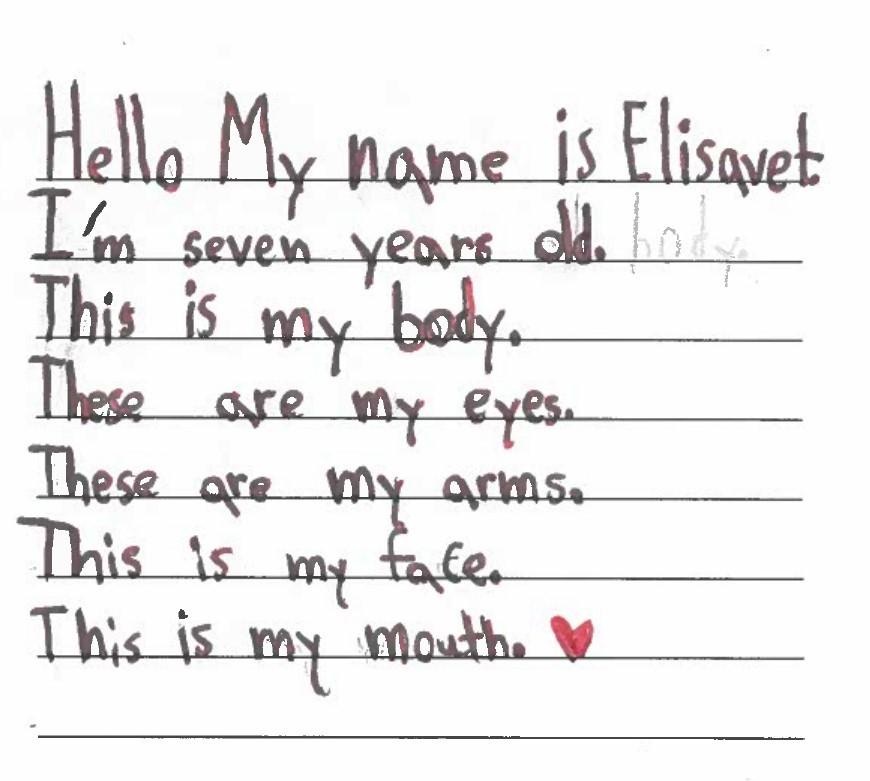 Hello My name is Elisavet.
I'm seven years old. body.
This is my body.
These are my eyes.
These are my arms.
This is my face.
This is my mouth.